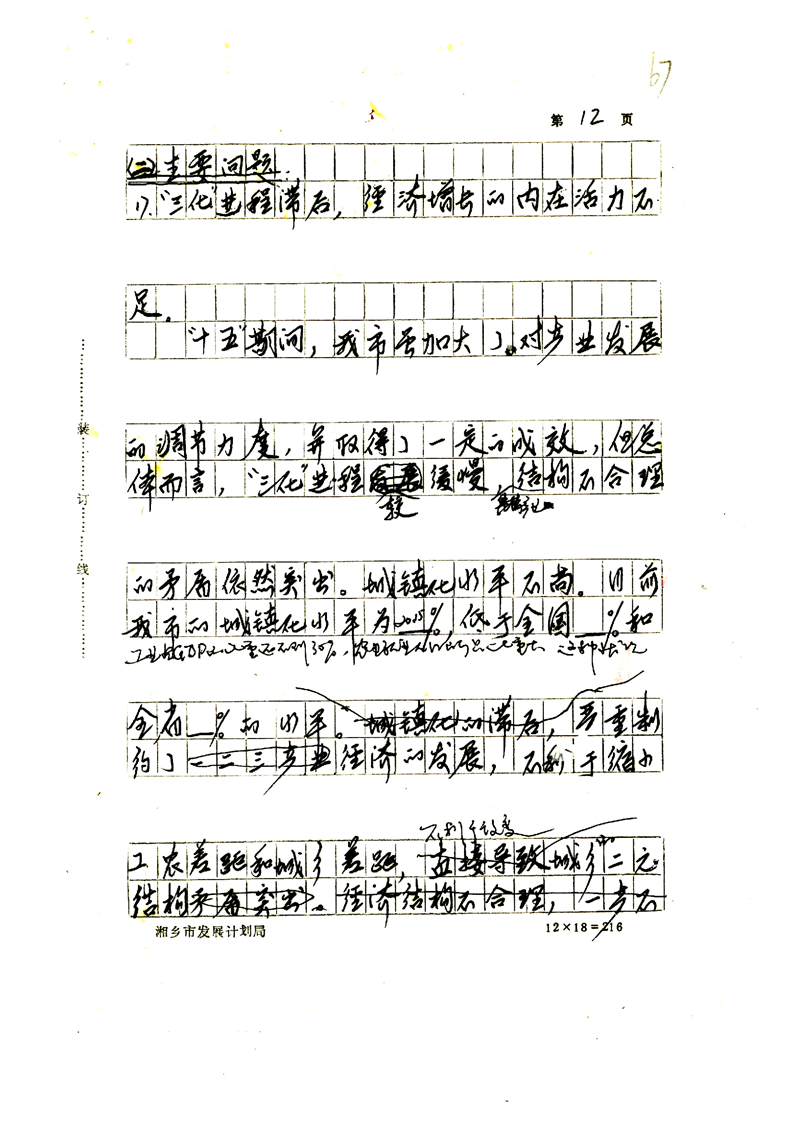 67
第 12 页
(二)主要问题.
1)."三化"进程滞后，经济增长的内在活力不
足。
"十五"期间，我市虽加大了对产业发展
的调节力度，并取得了一定的成效，但总
体而言，"三化"进程缓慢，结构不合理
较
的矛盾依然突出。城镇化水平不高。目前
我市的城镇化水平为 %，低于全国__%和
工业 30%，
全省__%的水平。城镇化的滞后，严重制
约了一二三产业经济的发展，不利于缩小
不利于改变
工农差距和城乡差距，直接导致城乡二元
结构矛盾突出。经济结构不合理，一产不
装
订
线
湘乡市发展计划局
12×18=216